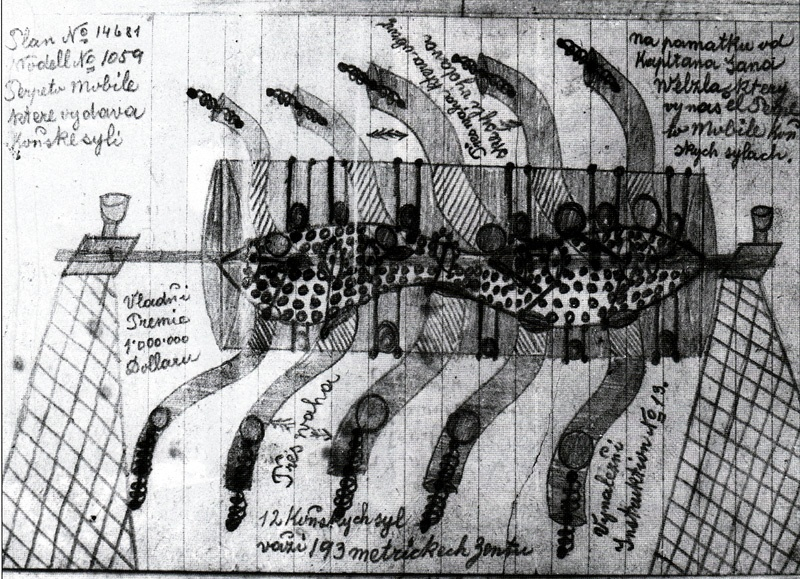 Plan No 14681
Modell No 1059
Perpeto Mobile
ktere vydava
Koňské syli
na pamatku od
Kapitana Jana
Welzla, ktery
vynas el Perpe
to Mobile koň
skych sylach.
Přes waha
ské syli vydava
Vladni
Premie
1'000'000
Dollaru
Přes waha
12 Koňskych syl
važi 193 metrickech Zentu
Vynalešni
Instruktion No 19.